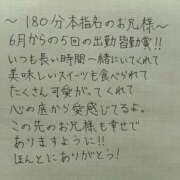 〜180分本指名のお兄様〜
6月からの5回の出勤皆勤賞!!
いつも長い時間一緒にいてくれて
美味しいスイーツも食べられて
たくさん可愛がってくれて
心の底から愛感じてるよ。
この先のお兄様も幸せで
ありますように!!
ほんとにありがとう!